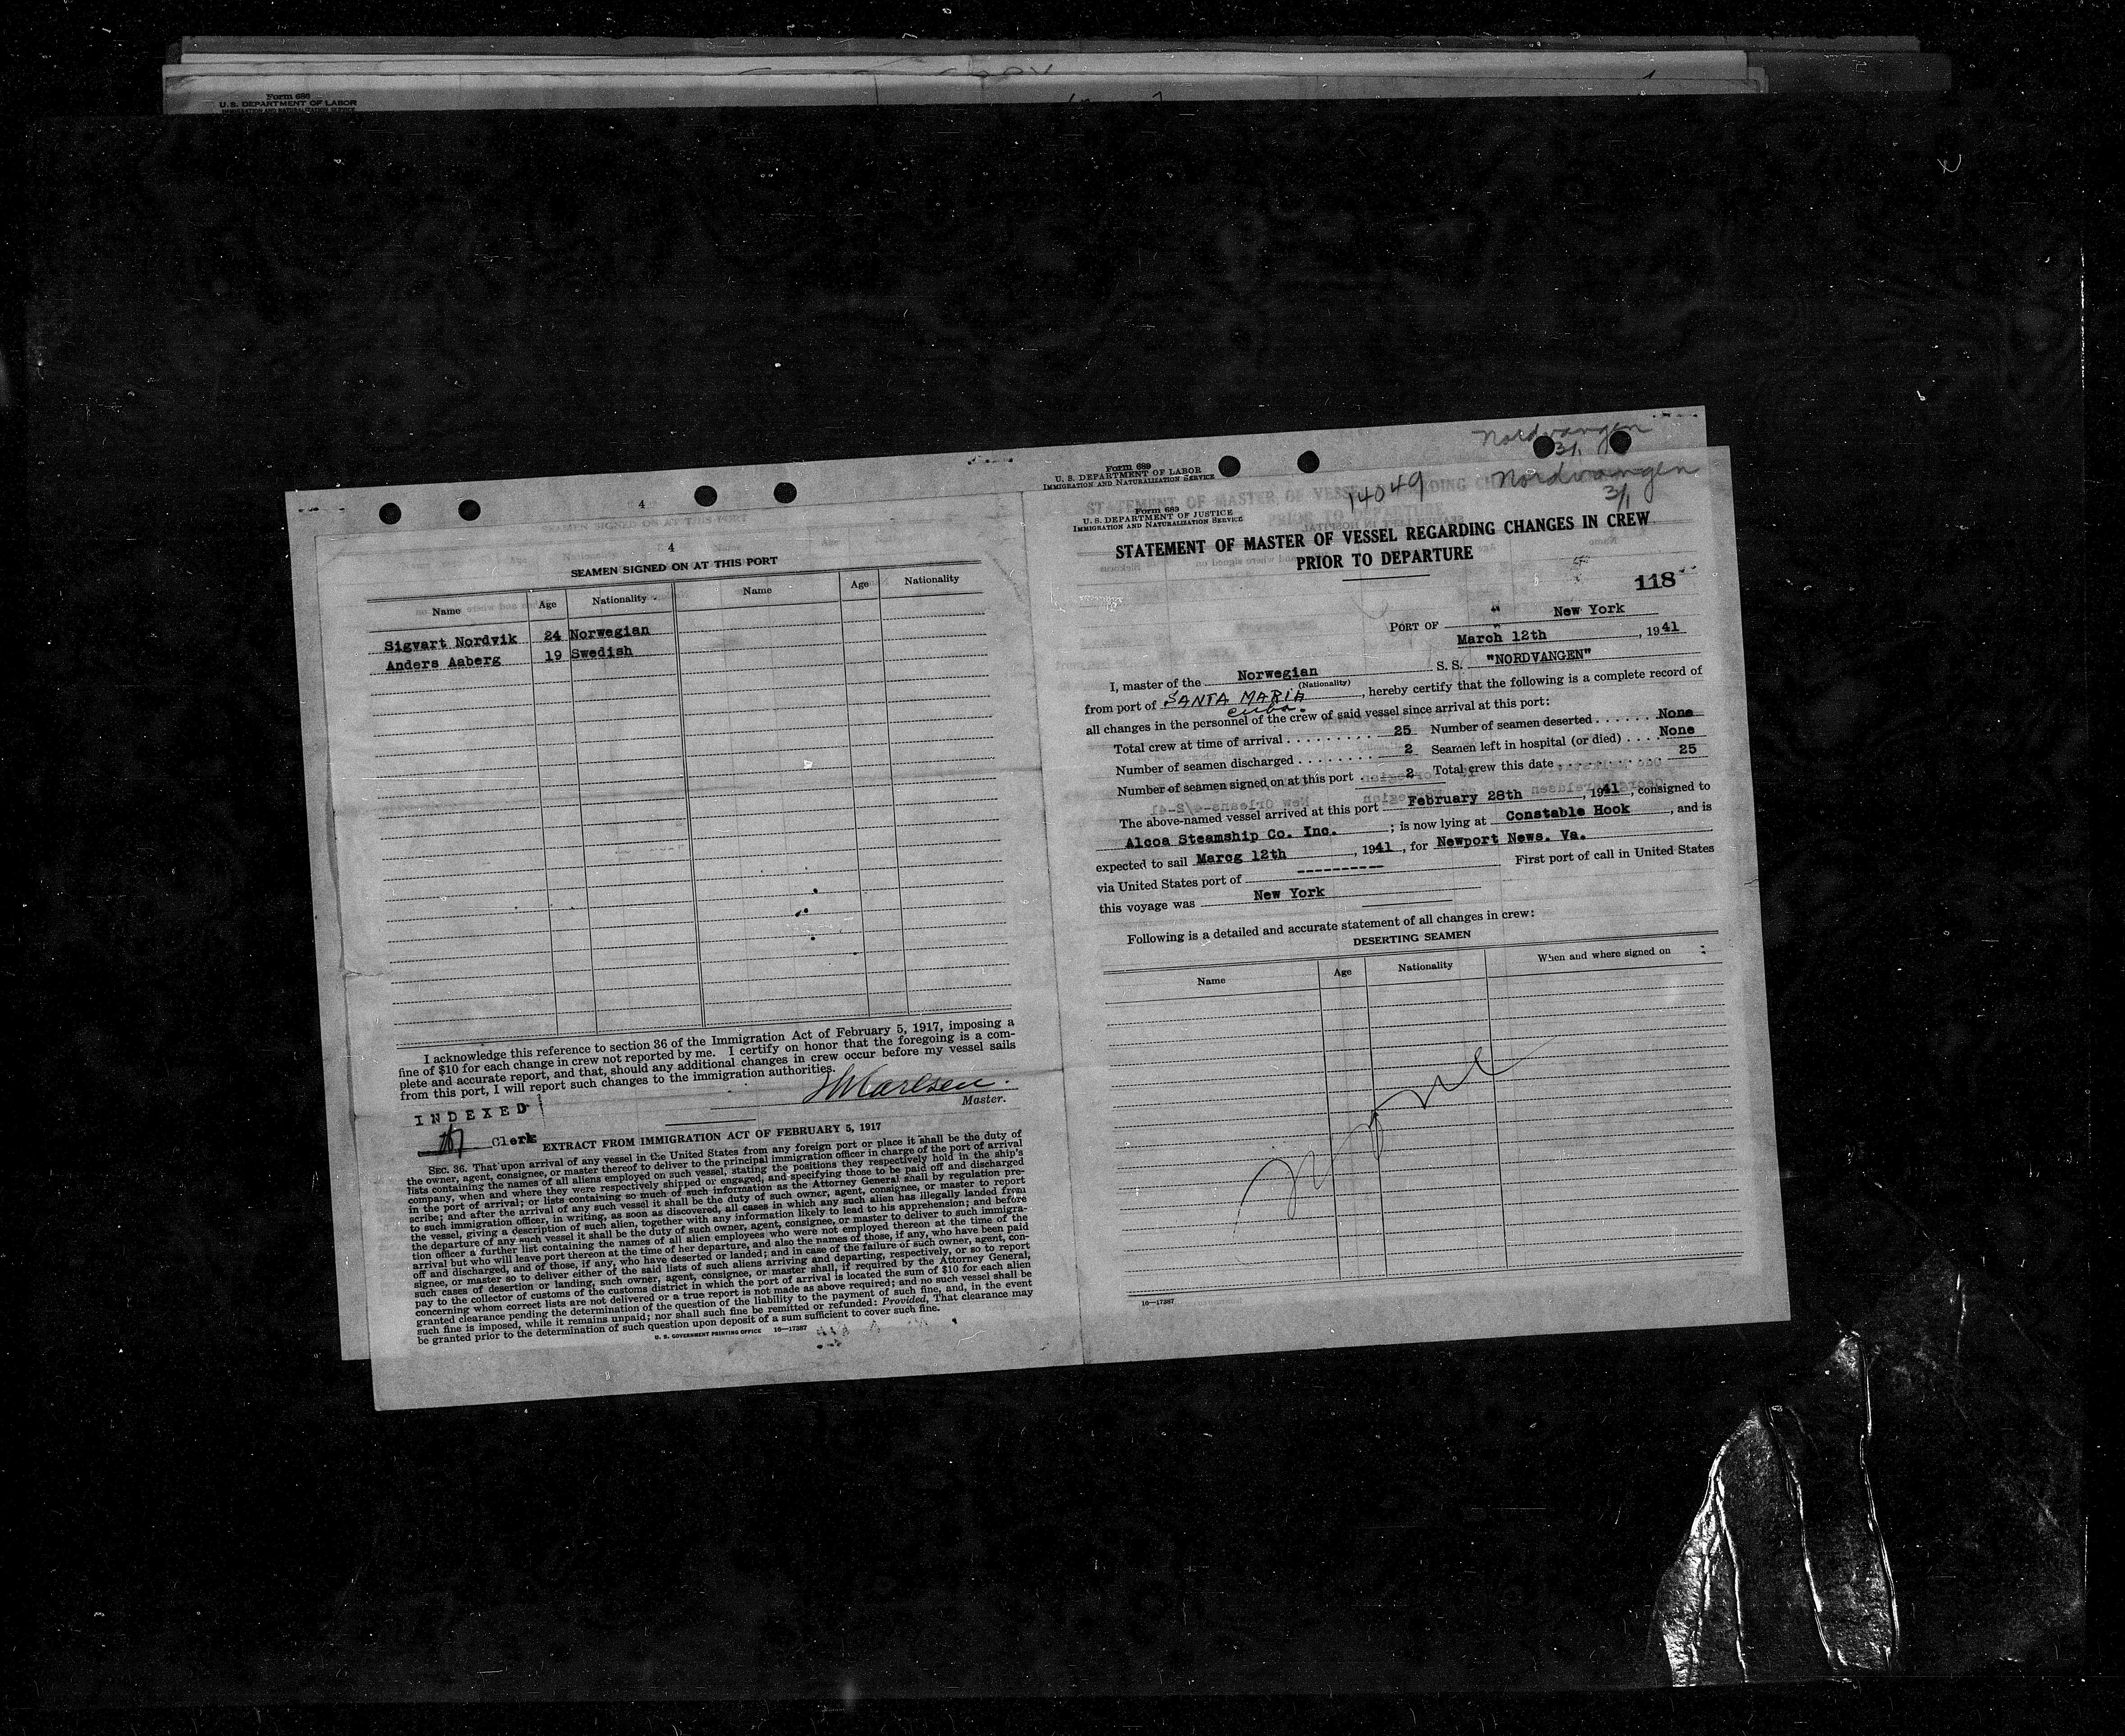 Form 680
U. S. DEPARTMENT OF LABOR
IMMIGRATION AND NATURALIZATION SERVICE
4
4
SEAMEN SIGNED ON AT THIS PORT
Name Age Nationality Name Age Nationality
Sigvart Nordvik 24 Norwegian
Anders Aaberg 19 Swedish
I acknowledge this reference to section 36 of the Immigration Act of February 5, 1917, imposing a
fine of $10 for each change in crew not reported by me. I certify on honor that the foregoing is a com-
plete and accurate report, and that, should any additional changes in crew occur before my vessel sails
from this port, I will report such changes to the immigration authorities.
Carlsen.
Master.
INDEXED
Clerk
EXTRACT FROM IMMIGRATION ACT OF FEBRUARY 5, 1917
SEC. 36. That upon arrival of any vessel in the United States from any foreign port or place it shall be the duty of
the owner, agent, consignee, or master thereof to deliver to the principal immigration officer in charge of the port of arrival
lists containing the names of all aliens employed on such vessel, stating the positions they respectively hold in the ship's
company, when and where they were respectively shipped or engaged, and specifying those to be paid off and discharged
in the port of arrival; or lists containing so much of such information as the Attorney General shall by regulation pre-
scribe; and after the arrival of any such vessel it shall be the duty of such owner, agent, consignee, or master to report
to such immigration officer, in writing, as soon as discovered, all cases in which any such alien has illegally landed from
the vessel, giving a description of such alien, together with any information likely to lead to his apprehension; and before
the departure of any such vessel it shall be the duty of such owner, agent, consignee, or master to deliver to such immigra-
tion officer a further list containing the names of all alien employees who were not employed thereon at the time of the
arrival but who will leave port thereon at the time of her departure, and also the names of those, if any, who have been paid
off and discharged, and of those, if any, who have deserted or landed; and in case of the failure of such owner, agent, con-
signee, or master so to deliver either of the said lists of such aliens arriving and departing, respectively, or so to report
such cases of desertion or landing, such owner, agent, consignee, or master shall, if required by the Attorney General,
pay to the collector of customs of the customs district in which the port of arrival is located the sum of $10 for each alien
concerning whom correct lists are not delivered or a true report is not made as above required; and no such vessel shall be
granted clearance pending the determination of the question of the liability to the payment of such fine, and, in the event
such fine is imposed, while it remains unpaid; nor shall such fine be remitted or refunded: Provided, That clearance may
be granted prior to the determination of such question upon deposit of a sum sufficient to cover such fine.
U. S. GOVERNMENT PRINTING OFFICE 16—17387
Nordvangen
3/1
Form 689
U. S. DEPARTMENT OF LABOR
IMMIGRATION AND NATURALIZATION SERVICE
14049
Nordvangen
3/1
Form 689
U. S. DEPARTMENT OF JUSTICE
IMMIGRATION AND NATURALIZATION SERVICE
STATEMENT OF MASTER OF VESSEL REGARDING CHANGES IN CREW
PRIOR TO DEPARTURE
118
PORT OF New York
March 12th, 1941
I, master of the Norwegian S. S. "NORDVANGEN"
(Nationality)
from port of SANTA MARIA, hereby certify that the following is a complete record of
Cuba.
all changes in the personnel of the crew of said vessel since arrival at this port:
Total crew at time of arrival . . . . . . . . . 25 Number of seamen deserted . . . . . . None
Number of seamen discharged . . . . . . . . 2 Seamen left in hospital (or died) . . . . None
Number of seamen signed on at this port . . 2 Total crew this date . . . . . . . . . . . 25
The above-named vessel arrived at this port February 28th, 1941, consigned to
Alcoa Steamship Co. Inc. ; is now lying at Constable Hook, and is
expected to sail Marcg 12th, 1941, for Newport News. Va.
via United States port of ---------- First port of call in United States
this voyage was New York
Following is a detailed and accurate statement of all changes in crew:
DESERTING SEAMEN
Name Age Nationality When and where signed on
16—17387